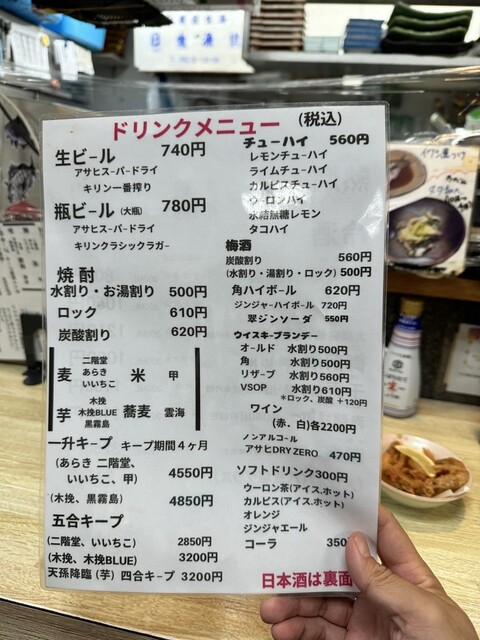 ドリンクメニュー (税込)
生ビール 740円
アサヒスーパードライ
キリン一番搾り
瓶ビール (大瓶) 780円
アサヒスーパードライ
キリンクラシックラガー
焼酎
水割り・お湯割り 500円
ロック 610円
炭酸割り 620円
麦 二階堂 あらき いいちこ 米 甲
芋 木挽 木挽BLUE 黒霧島 蕎麦 雲海
一升キープ キープ期間4ヶ月
(あらき 二階堂、
いいちこ、甲) 4550円
(木挽、黒霧島) 4850円
五合キープ
(二階堂、いいちこ) 2850円
(木挽、木挽BLUE) 3200円
天孫降臨 (芋) 四合キープ 3200円
チューハイ 560円
レモンチューハイ
ライムチューハイ
カルピスチューハイ
ウーロンハイ
氷結無糖レモン
タコハイ
梅酒
炭酸割り 560円
(水割り・湯割り・ロック) 500円
角ハイボール 620円
ジンジャーハイボール 720円
翠ジンソーダ 550円
ウイスキーブランデー
オールド 水割り500円
角 水割り500円
リザーブ 水割り560円
VSOP 水割り610円
*ロック、炭酸 +120円
ワイン
(赤、白)各2200円
ノンアルコール
アサヒDRY ZERO 470円
ソフトドリンク300円
ウーロン茶(アイス.ホット)
カルピス(アイス.ホット)
オレンジ
ジンジャエール
コーラ 350
日本酒は裏面